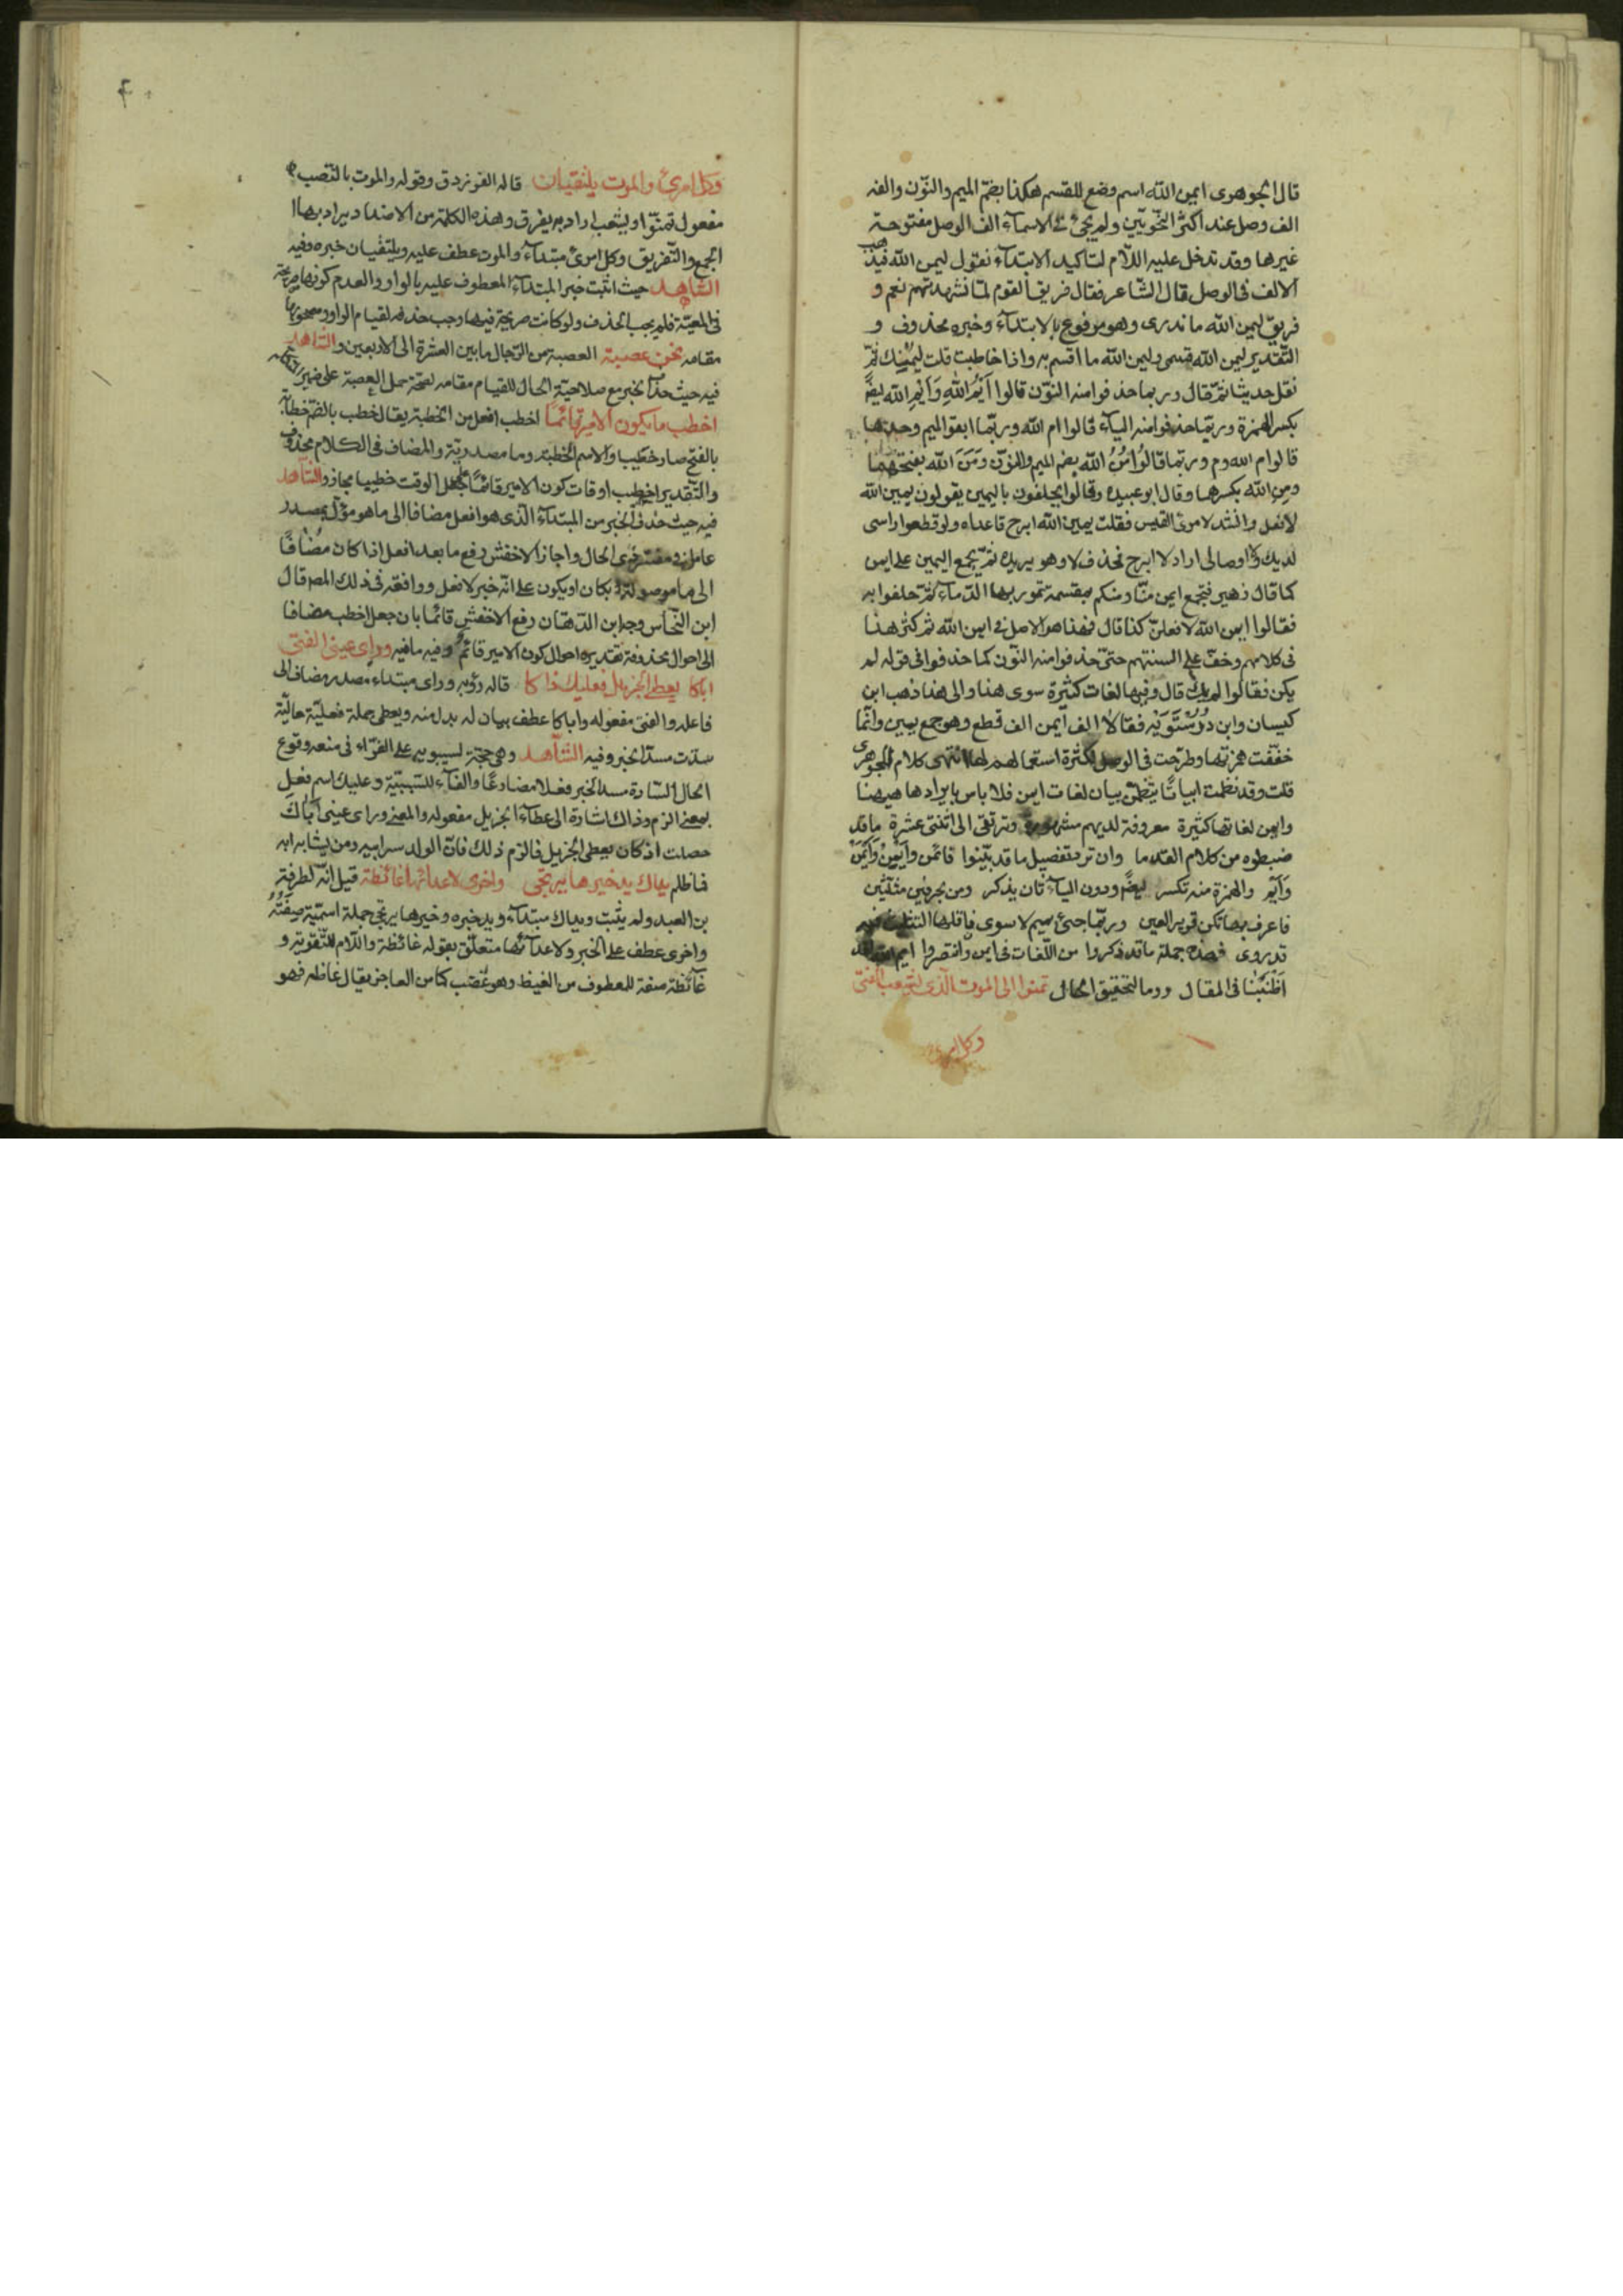 قال الجوهرى ايمن الله اسم وضع للقسم هكذا بضمّ الميم والنّون والفه
الف وصل عند اكثر النّحويّين ولم يجئ فى الاسمآء الف الوصل مفتوحة
غيرها وقد تدخل عليه اللّام لتاكيد الابتدآء نقول ليمن الله فيذهب
الالف فى الوصل قال الشّاعر فقال فريق القوم لمّا نشدتهم نعم و
فريق ليمن الله ما ندرى وهو مرفوع بالابتدآء وخبره محذوف و
التّقدير ليمن الله قسمى وليمن الله ما اقسم به واذا خاطبت قلت ليمنك ثمّ
نقل حديثا ثمّ قال وربما حذفوا منه النّون قالوا اَيْمُ اللهِ وَاِيْمِ الله ايضًا
بكسر الهمزة وربّما حذفوا منه اليآء قالوا ام الله وربّما ابقوا الميم وحدها
قالوا م الله وم وربّما قالُوا مُنُ الله بضم الميم والنّون ومَنَ الله بفتحهما
ومِنِ الله بكسرهما وقال ابو عبيده وقالوا يحلفون باليمين يقولون يمين الله
لا نفعل وانشد لامرئ القيس فقلت يمين الله ابرح قاعدا ولو قطعوا راسى
لديك واوصالى اراد لا ابرح فحذف لا وهو يريده ثمّ يجمع اليمين على ايمن
كما قال زهير فتجمع ايمن منّا ومنكم بمقسمة تمور بها الدّمآء ثمّ حلفوا به
فقالوا ايمن الله لافعلنّ كذا قال فهذا هو الاصل فى ايمن الله ثم كثر هذا
فى كلامهم وخفّ على السنتهم حتّى حذفوا منه النّون كما حذفوا فى قوله لم
يكن فقالوا لم يك قال وفيها لغات كثيرة سوى هذا والى هذا ذهب ابن
كيسان وابن دُرُسْتَوَيْه فقالا الف ايمن الف قطع وهو جمع يمين وانّما
خفّفت همزتها وطرحت فى الوصل لكثرة استعمالهم لها انتهى كلام الجوهرى
قلت وقد نظمت ابياتًا يتضمّن بيان لغات ايمن فلا باس بايرادها هيهنا
وايمن لغاتها كثيرة معروفة لديهم مشهورة وترتقى الى اثنتى عشرة ما قد
ضبطوه من كلام القدما وان ترد تفصيل ما قد بيّنوا قايمُن وايمِنُ وَايمَنْ
وَاَيْم والهمزة منه تكسر ايضًا ودون اليآء ثان يذكر ومن بحرفين مثلّثين
فاعرف بها تكن قرير العين وربّما جئ بميم لا سوى فانقلها التّثليث فيه
قد روى فهذه جملة ما قد ذكروا من اللّغات فى ايمن وانتصروا
اَطْنَبْنا فى المقال وروما لتحقيق الحال تمنوا لى الموت الّذى يشعب الفتى
وكل امرئ
وكل امرئ والموت يلتقيان قاله الفرزدق وقوله والموت بالنّصب
مفعول تمنّوا ويشعب اراد به يفرق وهذه الكلمة من الاضداد يراد بها
الجمع والتّفريق وكل امرئ مبتدآء والموت عطف عليه ويلتقيان خبره وفيه
الشّاهد حيث اثبت خبر المبتدآء المعطوف عليه بالواو والعدم كونها صريحة
فى المعيّة فلم يجب الحذف ولو كانت صريحة فيها وجب حذفه لقيام الواو ومصحوبها
مقامه نحن عصبة العصبة من الرّجال ما بين العشرة الى الاربعين والشّاهد
فيه حيث حذف الخبر مع صلاحيّة الحال للقيام مقامه لصحّة حمل العصبة على ضمير
اخطب ما يكون الامير قائمًا اخطب افعل من الخطبة يقال خطب بالضّم خطابة
بالفتح صار خطيبا والاسم الخطبة وما مصدريّة والمضاف فى الكلام محذوف
والتّقدير اخطب اوقات كون الامير قائمًا جعل الوقت خطيبا مجازا والشّاهد
فيه حيث حذف الخبر من المبتدآء الّذى هو افعل مضافا الى ما هو مؤوّل بمصدر
عامل فى مفسّر ذى الحال واجاز الاخفش رفع ما بعد افعل اذا كان مُضافًا
الى ما موصولة بكان او يكون على انّه خبر لافعل ووافقه فى ذلك المص قال
ابن النّحّاس وجه ابن الدّهّان رفع الاخفش قائما بان جعل اخطب مضافا
الى احوال محذوفة تقديره احوال كون الامير قائم وفيه ما فيه وراى عينى الفتى
اباكا يعطى الجزيل فعليك ذاكا قاله رؤبه وراى مبتداء مصدر مضاف الى
فاعله والفتى مفعوله واباكا عطف بيان له بدل منه ويعطى جملة فعليّة حاليّة
سدّت مسدّ الخبر وفيه الشّاهد وهى حجّة لسيبويه على الفرّاء فى منعه وقوع
الحال السّادة مسد الخبر فعلا مضارعًا والفآء للسّببيّة وعليك اسم فعل
بمعنى الزم وذاك اشارة الى عطآء الجزيل مفعوله والمعنى وراى عينى اَباك
حصلت اذ كان يعطى الجزيل فالزم ذلك فانّ الولد سرّ ابيه ومن يشابه ابه
فما ظلم يداك يد خيرها يرتجى واخرى لاعدائها غائظة قيل انّه لطرفة
بن العبد ولم يثبت ويداك مبتدآء ويد خبره وخيرها يرتجى جملة اسميّة صِفَتُهُ
واخرى عطف على الخبر ولاعدآئها متعلّق بقوله غائظة واللّام للتّقوية و
غآئظة صفة للمعطوف من الغيظ وهو غضب كامن العاجز يقال غاظه فهو